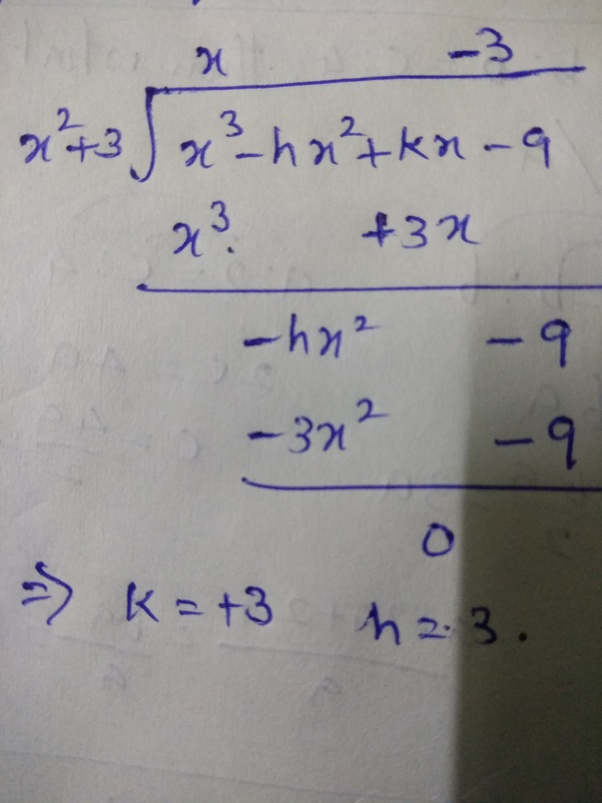 x -3
x²+3 x³-hx²+kx-9
x³. +3x
-hx² -9
-3x² -9
0
⇒ k=+3 h=3.